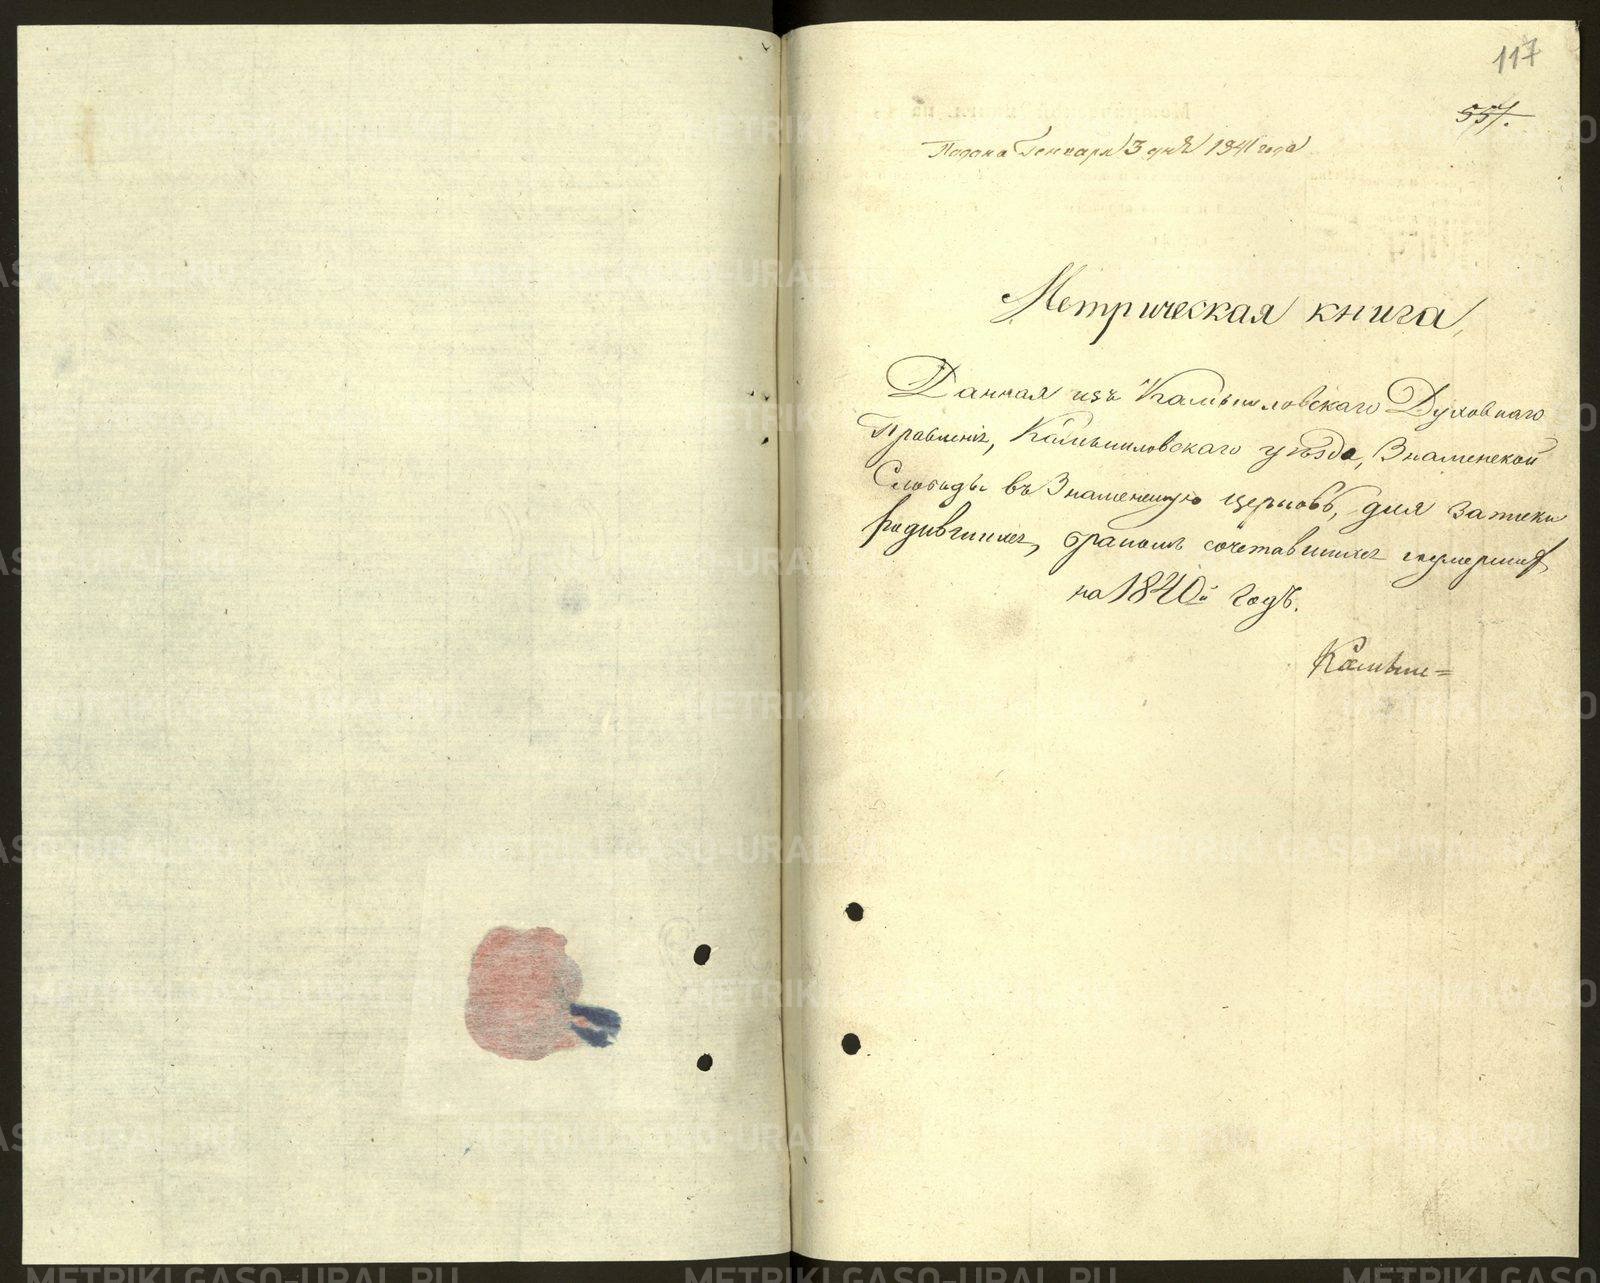 117
551.
Подана Генваря 3 дня 1841 года
Метрическая книга,
Данная изъ Камышловскаго Духовнаго
Правленія, Камышловскаго уѣзда, Знаменской
Слободы въ Знаменскую церковь, для записки
родившихся, бракомъ сочетавшихся и умершихъ
на 1840й годъ.
Камыш=
METRIKI.GASO-URAL.RU